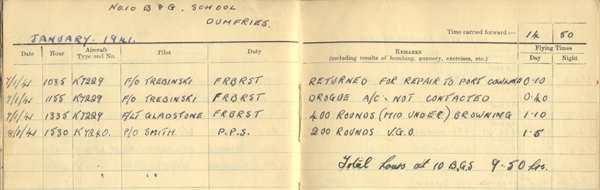 No.10 B & G. SCHOOL
DUMFRIES.
JANUARY. 1941.
Time carried forward:— 14 50
Date Hour Aircraft Type and No. Pilot Duty REMARKS (including results of bombing, gunnery, exercises, etc.) Flying Times Day Night
7/1/41 1035 K7229 F/O TREBINSKI FRBRST RETURNED FOR REPAIR TO PORT 0·10
7/1/41 1155 K7229 F/O TREBINSKI FRBRST DROGUE A/C. NOT CONTACTED 0·40
7/1/41 1335 K7229 F/LT GLADSTONE FRBRST 400 ROUNDS (MID UNDER) BROWNING 1·10
8/1/41 1530 P/O SMITH. P.P.S. 200 ROUNDS V.G.O. 1·5
Total hours at 10 B.G.S 9·50 hrs.